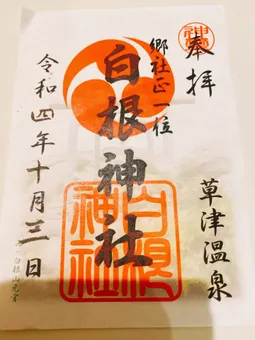 奉拝
草津温泉
郷社正一位
白根神社
白根神社
令和四年十月三日